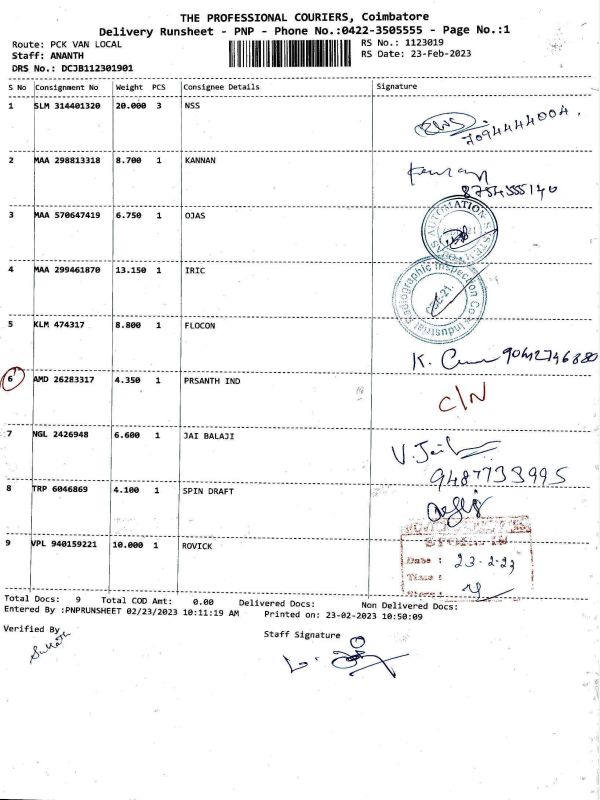 THE PROFESSIONAL COURIERS, Coimbatore
Delivery Runsheet - PNP - Phone No.:0422-3505555 - Page No.:1
Route: PCK VAN LOCAL RS No.: 1123019
Staff: ANANTH RS Date: 23-Feb-2023
DRS No.: DCJB112301901
S No Consignment No Weight PCS Consignee Details Signature
1 SLM 314401320 20.000 3 NSS
7094444004.
2 MAA 298813318 8.700 1 KANNAN
8754555140
3 MAA 570647419 6.750 1 OJAS
OJAS AUTOMATION SYSTEM
4 MAA 299461870 13.150 1 IRIC
Industrial Radiographic Inspection Co
5 KLM 474317 8.800 1 FLOCON
K. 9042746880
6 AMD 26283317 4.350 1 PRSANTH IND
C/N
7 NGL 2426948 6.600 1 JAI BALAJI
V. Jai
9487733995
8 TRP 6046869 4.100 1 SPIN DRAFT
9 VPL 940159221 10.000 1 ROVICK
Date : 23-2-23
Time :
Total Docs: 9 Total COD Amt: 0.00 Delivered Docs: Non Delivered Docs:
Entered By :PNPRUNSHEET 02/23/2023 10:11:19 AM Printed on: 23-02-2023 10:50:09
Verified By Staff Signature